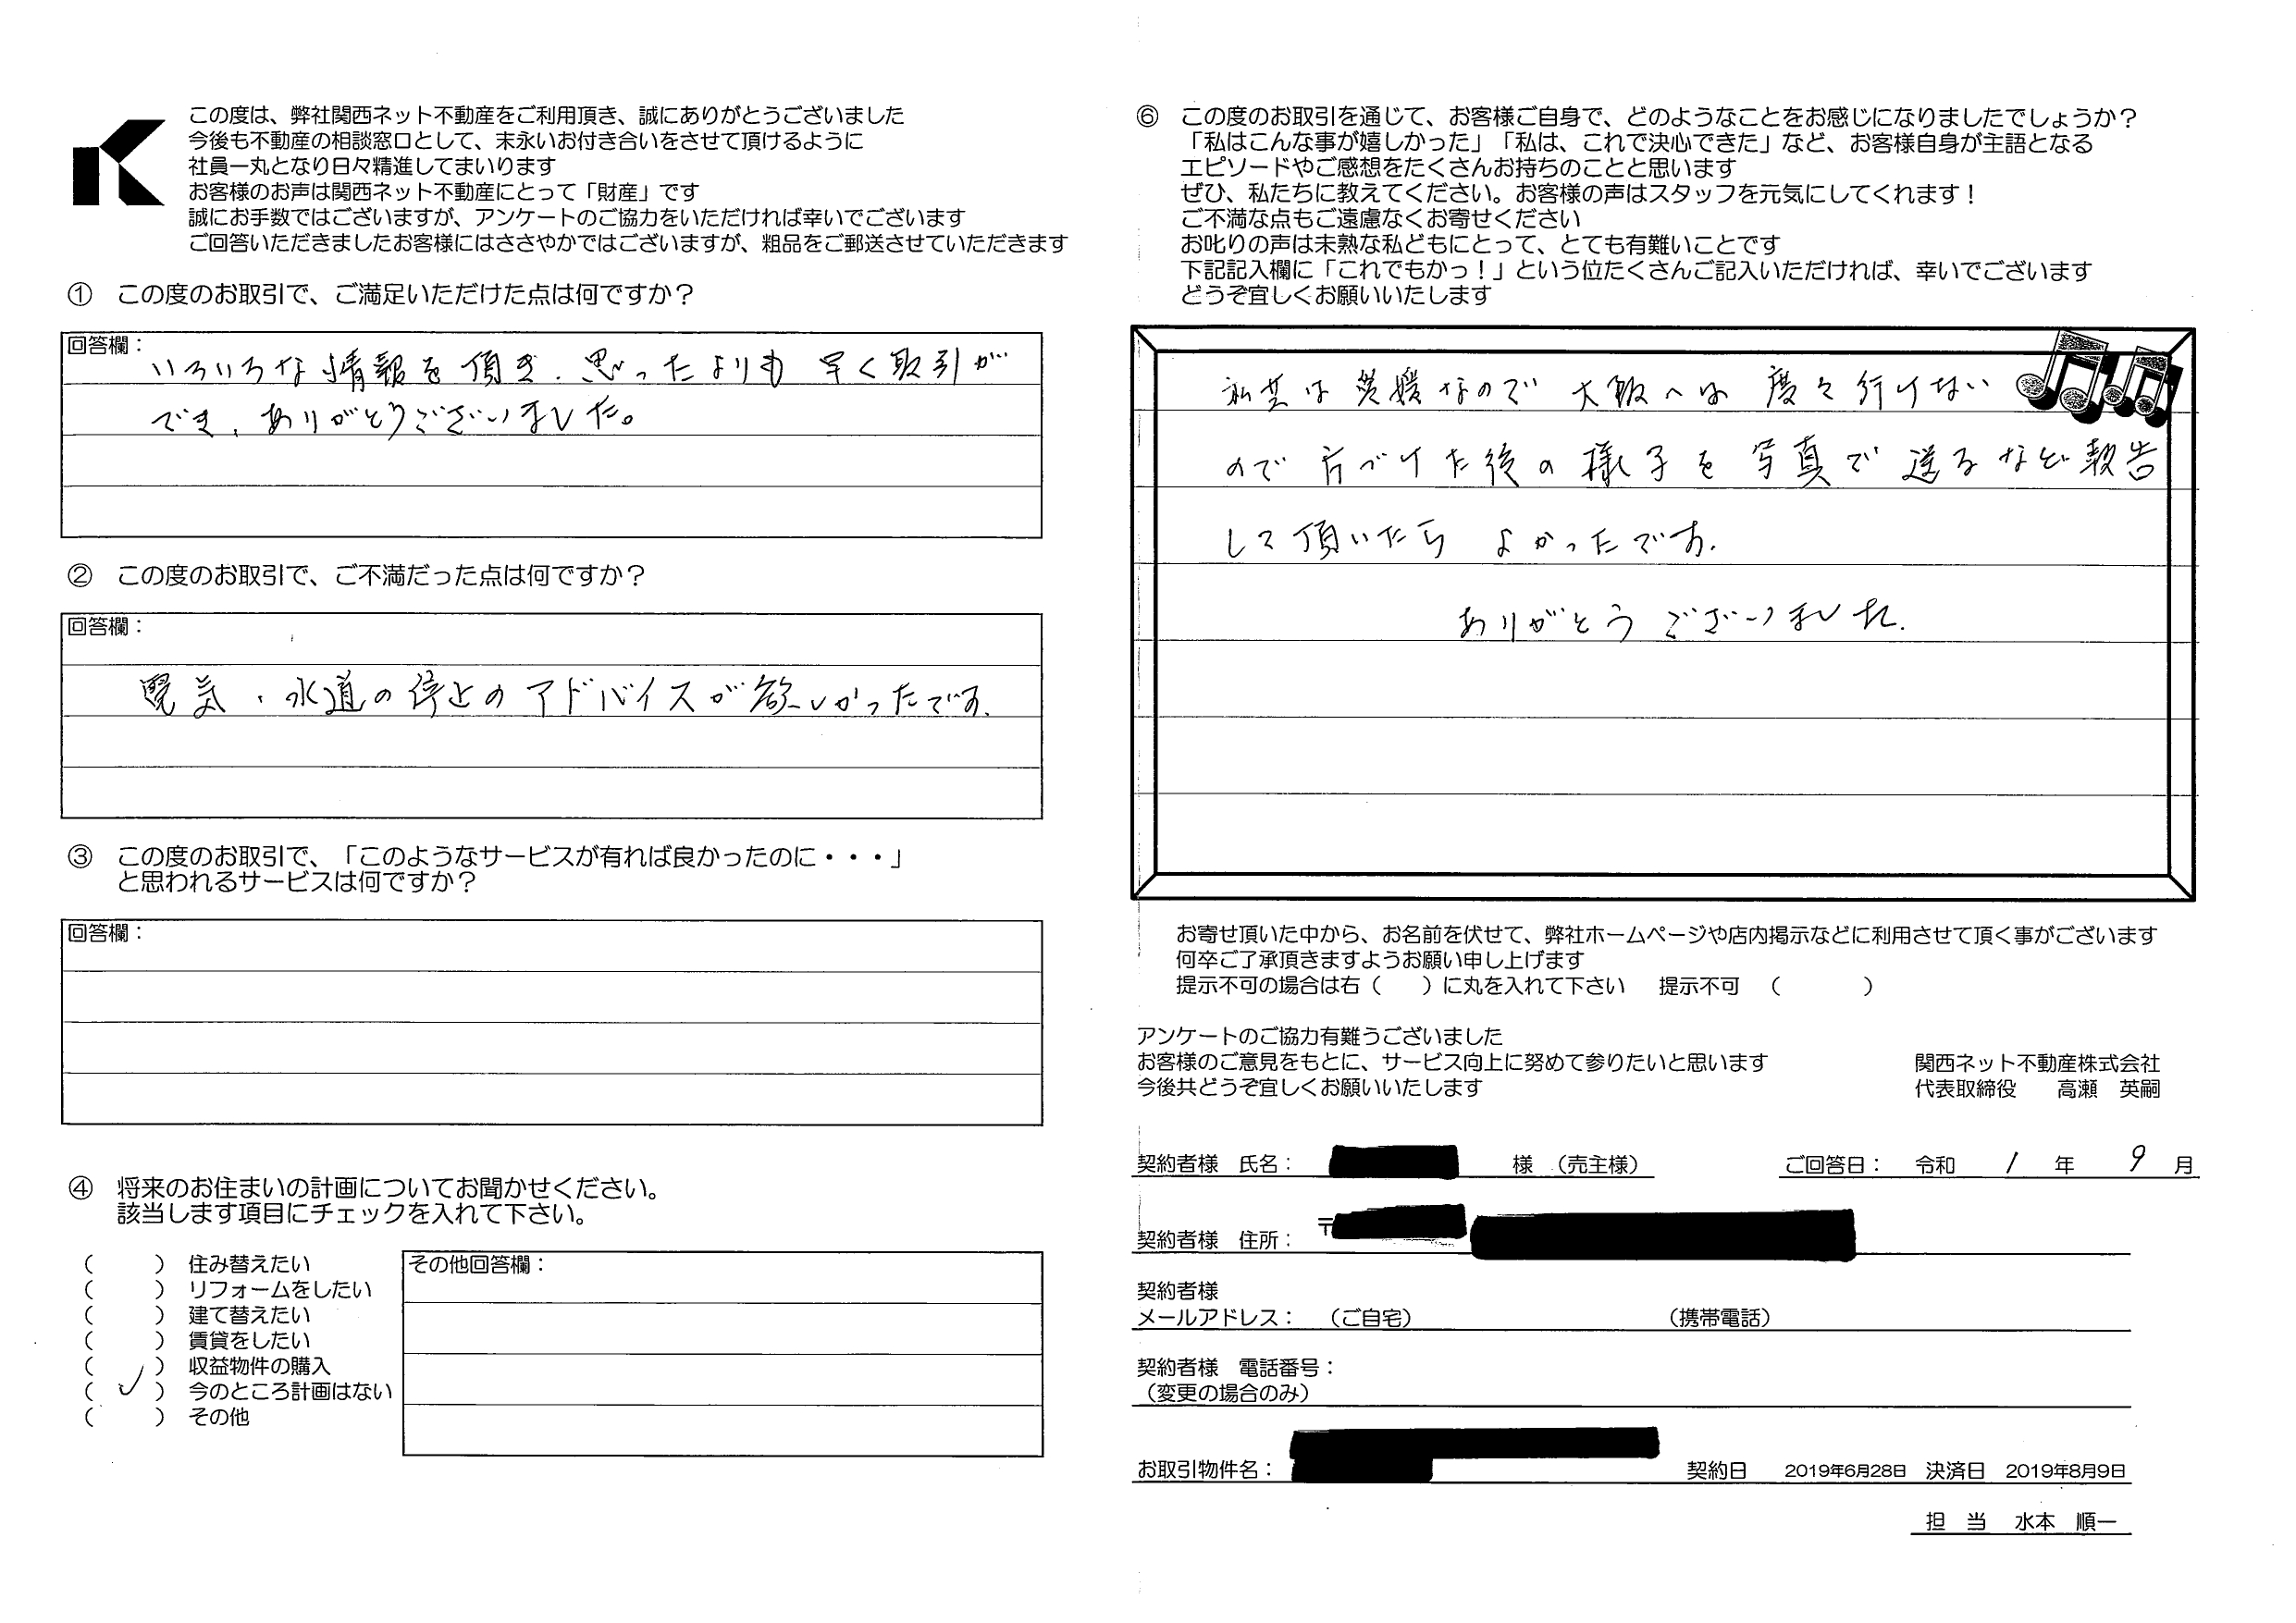 この度は、弊社関西ネット不動産をご利用頂き、誠にありがとうございました
今後も不動産の相談窓口として、末永いお付き合いをさせて頂けるように
社員一丸となり日々精進してまいります
お客様のお声は関西ネット不動産にとって「財産」です
誠にお手数ではございますが、アンケートのご協力をいただければ幸いでございます
ご回答いただきましたお客様にはささやかではございますが、粗品をご郵送させていただきます
① この度のお取引で、ご満足いただけた点は何ですか？
回答欄：
いろいろな情報を頂き、思ったよりも早く取引が
でき、ありがとうございました。
② この度のお取引で、ご不満だった点は何ですか？
回答欄：
電気・水道の停止のアドバイスが欲しかったです。
③ この度のお取引で、「このようなサービスが有れば良かったのに・・・」
と思われるサービスは何ですか？
回答欄：
④ 将来のお住まいの計画についてお聞かせください。
該当します項目にチェックを入れて下さい。
（　　）住み替えたい
（　　）リフォームをしたい
（　　）建て替えたい
（　　）賃貸をしたい
（　　）収益物件の購入
（ ✓ ）今のところ計画はない
（　　）その他
その他回答欄：
⑥ この度のお取引を通じて、お客様ご自身で、どのようなことをお感じになりましたでしょうか？
「私はこんな事が嬉しかった」「私は、これで決心できた」など、お客様自身が主語となる
エピソードやご感想をたくさんお持ちのことと思います
ぜひ、私たちに教えてください。お客様の声はスタッフを元気にしてくれます！
ご不満な点もご遠慮なくお寄せください
お叱りの声は未熟な私どもにとって、とても有難いことです
下記記入欄に「これでもかっ！」という位たくさんご記入いただければ、幸いでございます
どうぞ宜しくお願いいたします
私共は愛媛なので大阪へは度々行けない
ので片づけた後の様子を写真で送るなど報告
して頂いたらよかったです。
ありがとうございました。
お寄せ頂いた中から、お名前を伏せて、弊社ホームページや店内掲示などに利用させて頂く事がございます
何卒ご了承頂きますようお願い申し上げます
提示不可の場合は右（　　）に丸を入れて下さい　提示不可　（　　　　）
アンケートのご協力有難うございました
お客様のご意見をもとに、サービス向上に努めて参りたいと思います
今後共どうぞ宜しくお願いいたします
関西ネット不動産株式会社
代表取締役　高瀬　英嗣
契約者様　氏名：　様　（売主様）　ご回答日：　令和　1　年　9　月
契約者様　住所：　〒
契約者様
メールアドレス：　（ご自宅）　（携帯電話）
契約者様　電話番号：
（変更の場合のみ）
お取引物件名：　契約日　2019年6月28日　決済日　2019年8月9日
担　当　水本　順一